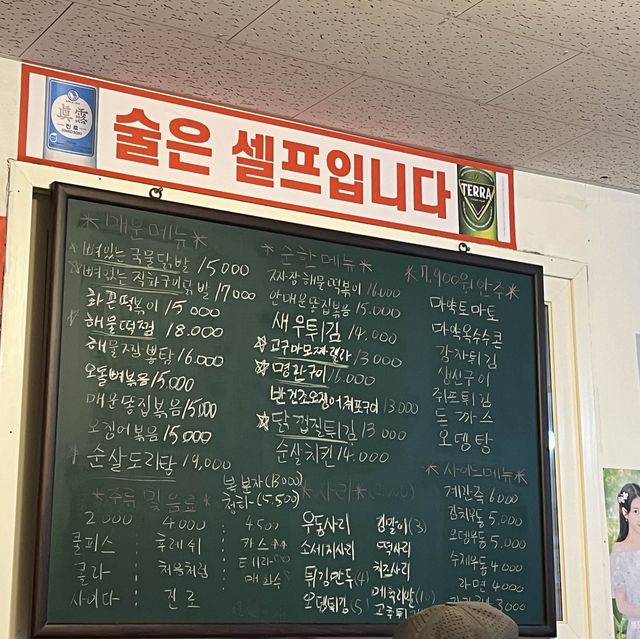 眞露
진로
술은 셀프입니다
TERRA
*매운메뉴*
뼈있는 국물닭발 15,000
뼈있는 직화구이닭발 17,000
화끈떡볶이 15,000
해물떡찜 18.000
해물찜뽕탕 16.000
오돌뼈볶음 15,000
매운똥집볶음 15,000
오징어볶음 15,000
순살도리탕 19,000
*순한메뉴*
짜장해물떡볶이 16.000
안매운똥집볶음 15.000
새우튀김 14.000
고구마모짜렐라 13000
명란구이 16.000
반건조오징어쥐포구이 13.000
닭껍질튀김 13000
순살치킨 14.000
*7.900원안주*
마약토마토
마약옥수수콘
감자튀김
생선구이
쥐포튀김
돈까스
오뎅탕
*사이드메뉴*
계란죽 6.000
김치우동 5.000
오뎅우동 5,000
수제우동 4.000
라면 4000
3000
*주류 및 음료*
복분자 (13000)
청하 (5.500)
2000 4000 4500
쿨피스 : 후레쉬 : 카스
콜라 : 처음처럼 : 테라
사이다 : 진로 매화수
*사리*
우동사리 김말이(3)
소세지사리 떡사리
튀김만두(4) 치즈사리
오뎅튀김(5) 메추리알